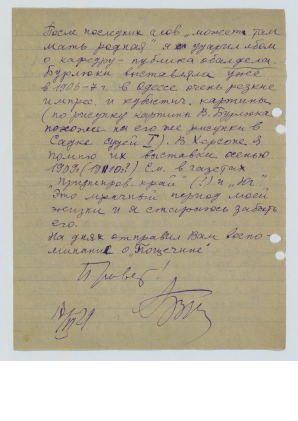 После последних слов „может там
мать родная" я ударил лбом
о кафедру – публика обалдела.
Бурлюки выставляли уже
в 1906-7 г. в Одессе очень резкие
импрес. и кубистич. картины
(по рисунку картин В. Бурлюка
похожи на его же рисунки в
Садке судей I). В Херсоне я
помню их выставки осенью
1909 (1910?) См. в газетах
край" (?) и „Юг".
Это мрачный период моей
жизни и я стараюсь забыть
его.
На днях отправил Вам воспо-
минание о „Пощечине"
Привет!